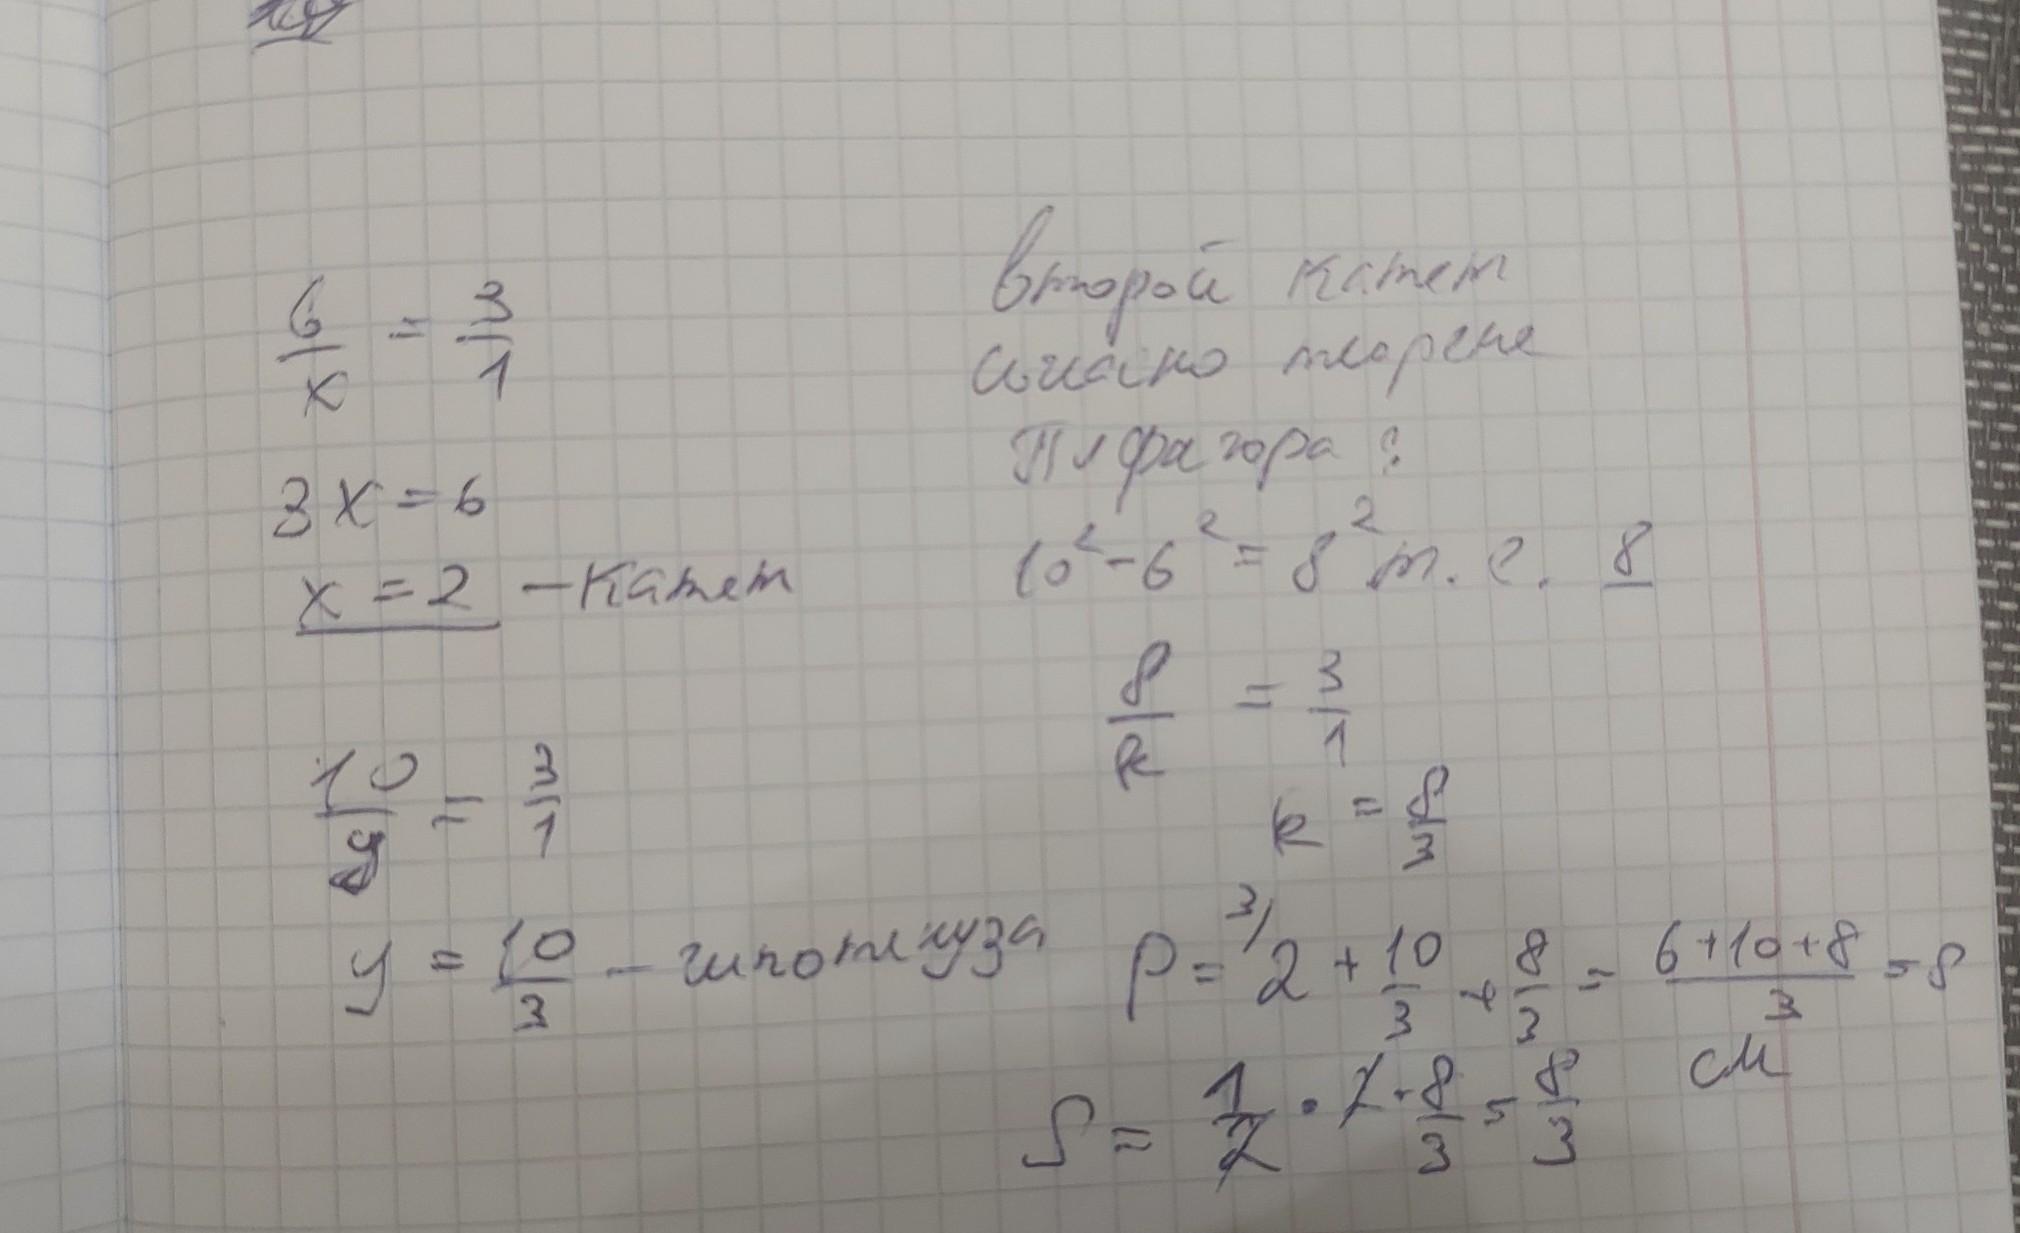 6/x = 3/1
3x = 6
x = 2 – катет
10/y = 3/1
y = 10/3 – гипотенуза
второй катет
согласно теореме
Пифагора:
10² - 6² = 8² т. е. 8
8/k = 3/1
k = 8/3
P = ³⁄2 + 10/3 + 8/3 = (6+10+8)/3 = 8
см
S = 1/2 · 2 · 8/3 = 8/3